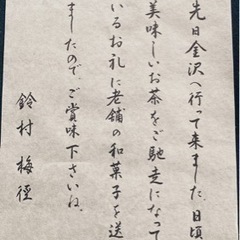 先日金沢へ行って来ました。日頃
美味しいお茶をご馳走になって
いるお礼に老舗の和菓子を送
ましたので、ご賞味下さいね。
鈴村 梅径